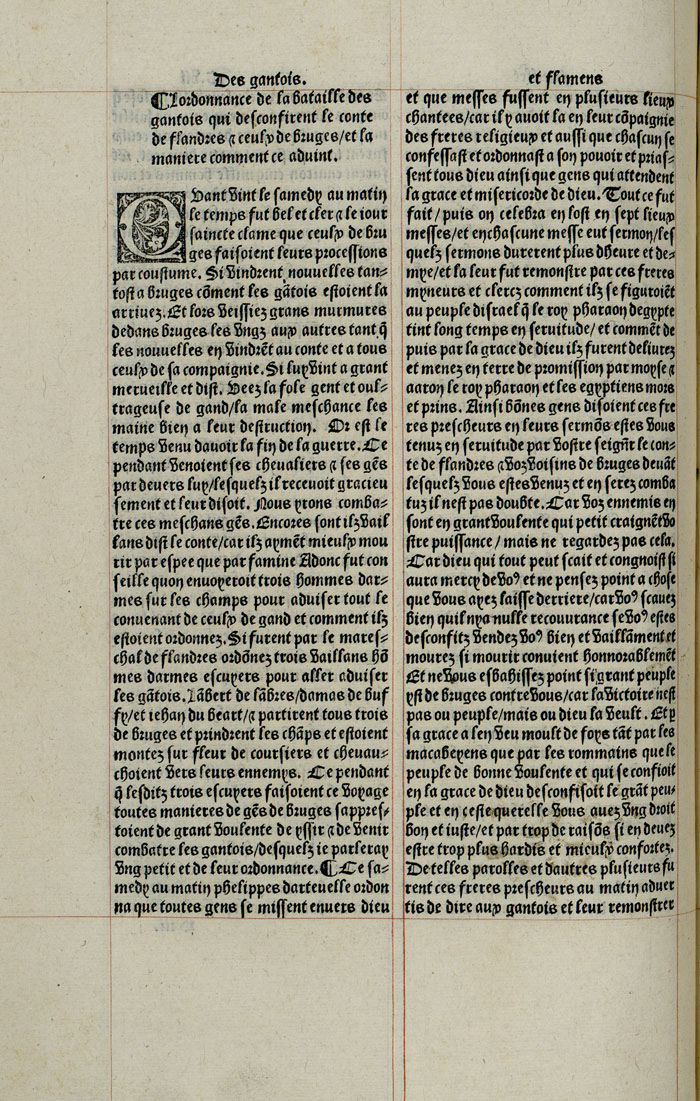 Des gantois.
¶Lordonnance de la bataille des
gantois qui desconfirent le conte
de flandres ⁊ ceulx de bruges/et la
maniere comment ce advint.
QVant vint le samedy au matin
le temps fut bel et cler ⁊ le iour
saincte clame que ceulx de bru
ges faisoient leurs processions
par coustume. Si vindrent nouvelles tan-
tost a bruges cōment les gātois estoient la
arrivez. Et lors veissiez grans murmures
dedans bruges les vngz aux autres tant q̄
les nouuelles en vindrēt au conte et a tous
ceulx de sa compaignie. Si luy vint a grant
merueille et dist. Veez la fole gent et oul-
trageuse de gand/la male meschance les
maine bien a leur destruction. Or est le
temps venu dauoir la fin de la guerre. Ce
pendant venoient ses cheualiers ⁊ ses gēs
par deuers luy/lesquelz il recevoit gracieu
sement et leur disoit. Nous yrons comba-
tre ces meschans gēs. Encores sont ilz vail
lans dist le conte/car ilz aymēt mieulx mou
rir par espee que par famine Adonc fut con
seille quon enuoyeroit trois hommes dar-
mes sur les champs pour aduiser tout le
conuenant de ceulx de gand et comment ilz
estoient ordonnez. Si furent par le mares-
chal de flandres ordōnez trois vaillans hō
mes darmes escuyers pour aller aduiser
les gātois. Lābert de lābres/damas de buf
fy/et iehan du beart/⁊ partirent tous trois
de bruges et prindrent les chāps et estoient
montez sur fleur de coursiers et cheuau-
choient vers leurs ennemys. Ce pendant
q̄ lesditz trois escuyers faisoient ce voyage
toutes manieres de gēs de bruges sappres-
toient de grant voulente de yssir ⁊ de venir
combatre les gantois/desquelz ie parleray
vng petit et de leur ordonnance. ¶Ce sa-
medy au matin phelippes dartevelle ordon
na que toutes gens se missent enuers dieu
et flamens
et que messes fussent en plusieurs lieux
chantees/car il y auoit la en leur cōpaignie
des freres religieux et aussi que chascun se
confessast et ordonnast a son pouoir et prias-
sent tous dieu ainsi que gens qui attendent
la grace et misericorde de dieu. Tout ce fut
fait/puis on celebra en lost en sept lieux
messes/et en chascune messe eut sermon/les
quelz sermons durerent plus dheure et de-
mye/et la leur fut remonstre par ces freres
myneurs et clercz comment ilz se figuroiēt
au peuple disrael q̄ le roy pharaon degypte
tint long temps en seruitude/et commēt de
puis par la grace de dieu ilz furent deliurez
et menez en terre de promission par moyse ⁊
aaron le roy pharaon et les egyptiens mors
et prins. Ainsi bōnes gens disoient ces fre
res prescheurs en leurs sermōs estes vous
tenuz en seruitude par vostre seignr̄ le con-
te de flandres ⁊ voz voisins de bruges deuāt
lesquelz vous estes venuz et en serez comba
tuz il nest pas doubte. Car voz ennemis en
sont en grant voulente qui petit craignēt vo
stre puissance/mais ne regardez pas cela.
Car dieu qui tout peut scait et congnoist si
aura mercy de voꝰ et ne pensez point a chose
que vous ayez laisse derriere/car voꝰ scauez
bien quil nya nulle recouurance se voꝰ estes
desconfitz vendez voꝰ bien et vaillāment et
mourez si mourir conuient honnorablemēt
Et ne vous esbahissez point si grant peuple
yst de bruges contre vous/car la victoire nest
pas ou peuple/mais ou dieu la veult. Et p
sa grace a len veu moult de foys tāt par les
macabeyens que par les rommains que le
peuple de bonne voulente et qui se confioit
en la grace de dieu desconfisoit le grāt peu-
ple et en ceste querelle vous auez vng droit
bon et iuste/et par trop de raisōs si en deuez
estre trop plus hardis et mieulx confortez.
De telles parolles et dautres plusieurs fu
rent ces freres prescheurs au matin aduer
tis de dire aux gantois et leur remonstrer